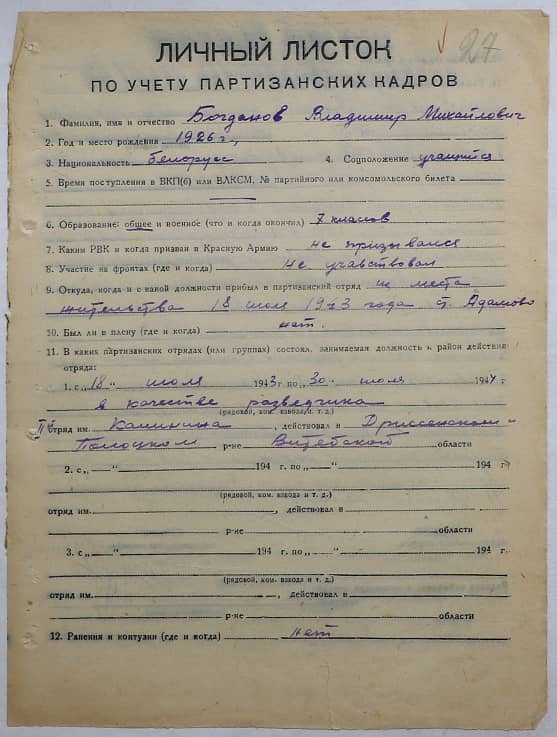 27
ЛИЧНЫЙ ЛИСТОК
ПО УЧЕТУ ПАРТИЗАНСКИХ КАДРОВ
1. Фамилия, имя и отчество Богданов Владимир Михайлович
2. Год и место рождения 1926 г.,
3. Национальность белорусс 4. Соцположение учащийся
5. Время поступления в ВКП(б) или ВЛКСМ, № партийного или комсомольского билета
6. Образование: общее и военное (что и когда окончил) 7 классов
7. Каким РВК и когда призван в Красную Армию не призывался
8. Участие на фронтах (где и когда) Не учавствовал
9. Откуда, когда и с какой должности прибыл в партизанский отряд из места
жительства 18 июля 1943 года д. Адамово
10. Был ли в плену (где и когда) нет.
11. В каких партизанских отрядах (или группах) состоял, занимаемая должность и район действия
отряда:
1. с „18“ июля 1943 г. по „30“ июля 1944 г.
в качестве разведчика
(рядовой, ком. взвода и т. д.)
отряд им. Калинина, действовал в Дриссенском и
Полоцком р-не Витебской области
2. с „ “ 194 г. по „ “ 194 г.
(рядовой, ком. взвода и т. д.)
отряд им. , действовал в
р-не области
3. с „ “ 194 г. по „ “ 194 г.
(рядовой, ком. взвода и т. д.)
отряд им. , действовал в
р-не области
12. Ранения и контузии (где и когда) нет